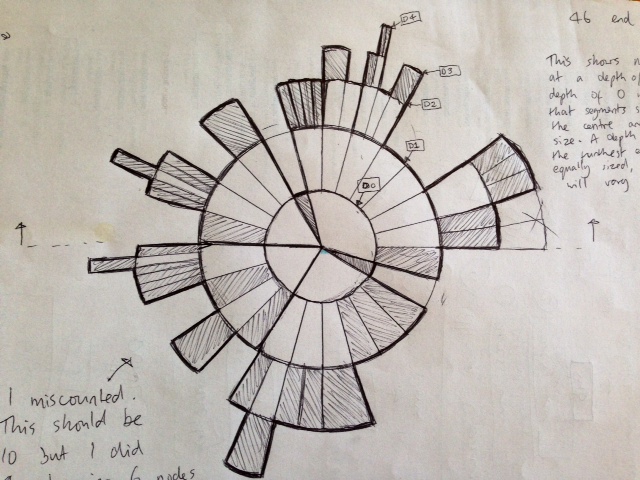 46 end
This shows
at a depth of
depth of 0
that segments
the centre
size. A depth
the furthest
equally sized,
will vary
D4
D3
D2
D1
D0
I miscounted.
This should be
10 but I did
6 nodes